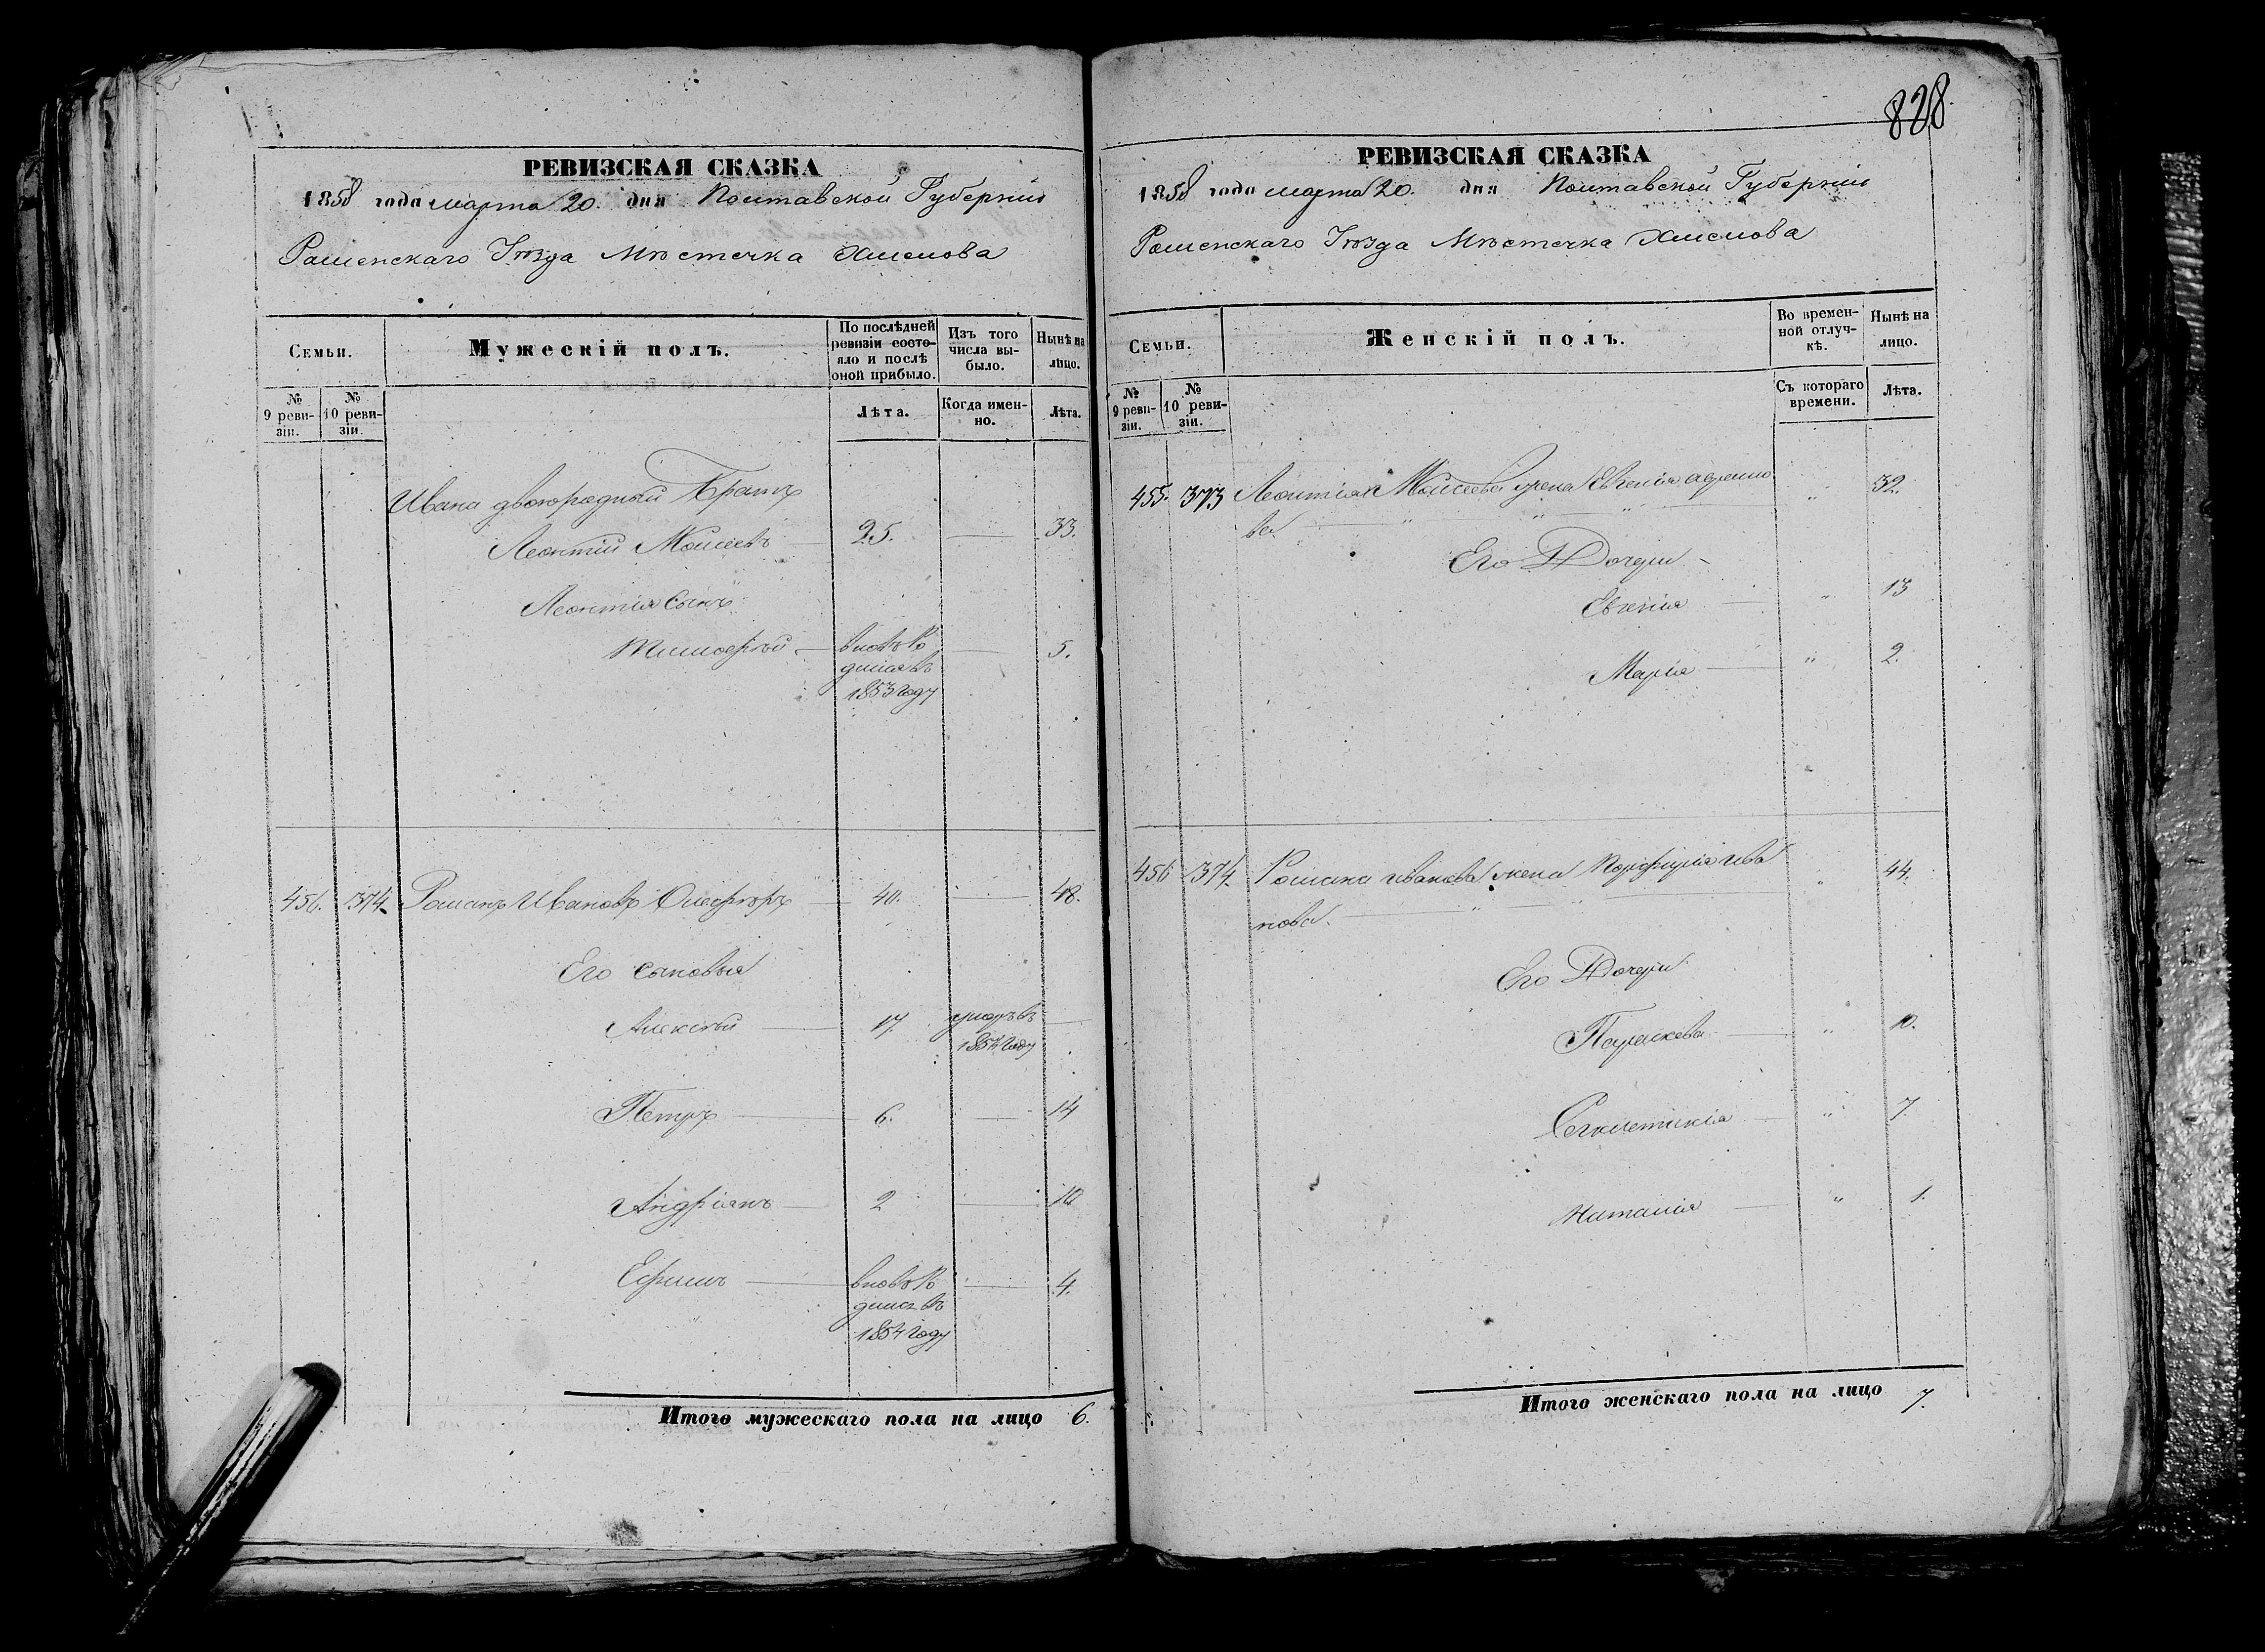 828
РЕВИЗСКАЯ СКАЗКА
1858 года марта 20. дня Полтавской Губерніи
Роменскаго Уѣзда Мѣстечка Хмелова
Семьи.
Мужескій полъ.
По послѣдней ревизіи состояло и послѣ оной прибыло.
Изъ того числа выбыло.
Нынѣ на лицо.
№ 9 ревизіи.
№ 10 ревизіи.
Лѣта.
Когда именно.
Лѣта.
Ивана двоюродный Братъ
Леонтій Моисеевъ 25. — 33.
Леонтія Сынъ
Тимофѣй — вновь Ро — 5.
дился въ
1853 году
456. 374. Романъ Ивановъ 40. — 48.
Его сыновья
Алексѣй — 17. умеръ въ —
1854 году
Петръ — 6. — 14
Андріянъ — 2 — 10
Ефимъ — вновь Ро — 4.
дился въ
1854 году
Итого мужескаго пола на лицо 6.
РЕВИЗСКАЯ СКАЗКА
1858 года марта 20. дня Полтавской Губерніи
Роменскаго Уѣзда Мѣстечка Хмелова
Семьи.
Женскій полъ.
Во временной отлучкѣ.
Нынѣ на лицо.
№ 9 ревизіи.
№ 10 ревизіи.
Съ котораго времени.
Лѣта.
455. 373 Леонтія Моисеева жена Евгенія " 32.
ва
Его Дочери
Евгенія — " 13
Марія — " 2.
456 374. Романа Иванова жена Порфирія Ива " 44.
нова
Его Дочери
Параскева — " 10.
Секлетикія — " 7.
Наталія — " 1.
Итого женскаго пола на лицо 7.